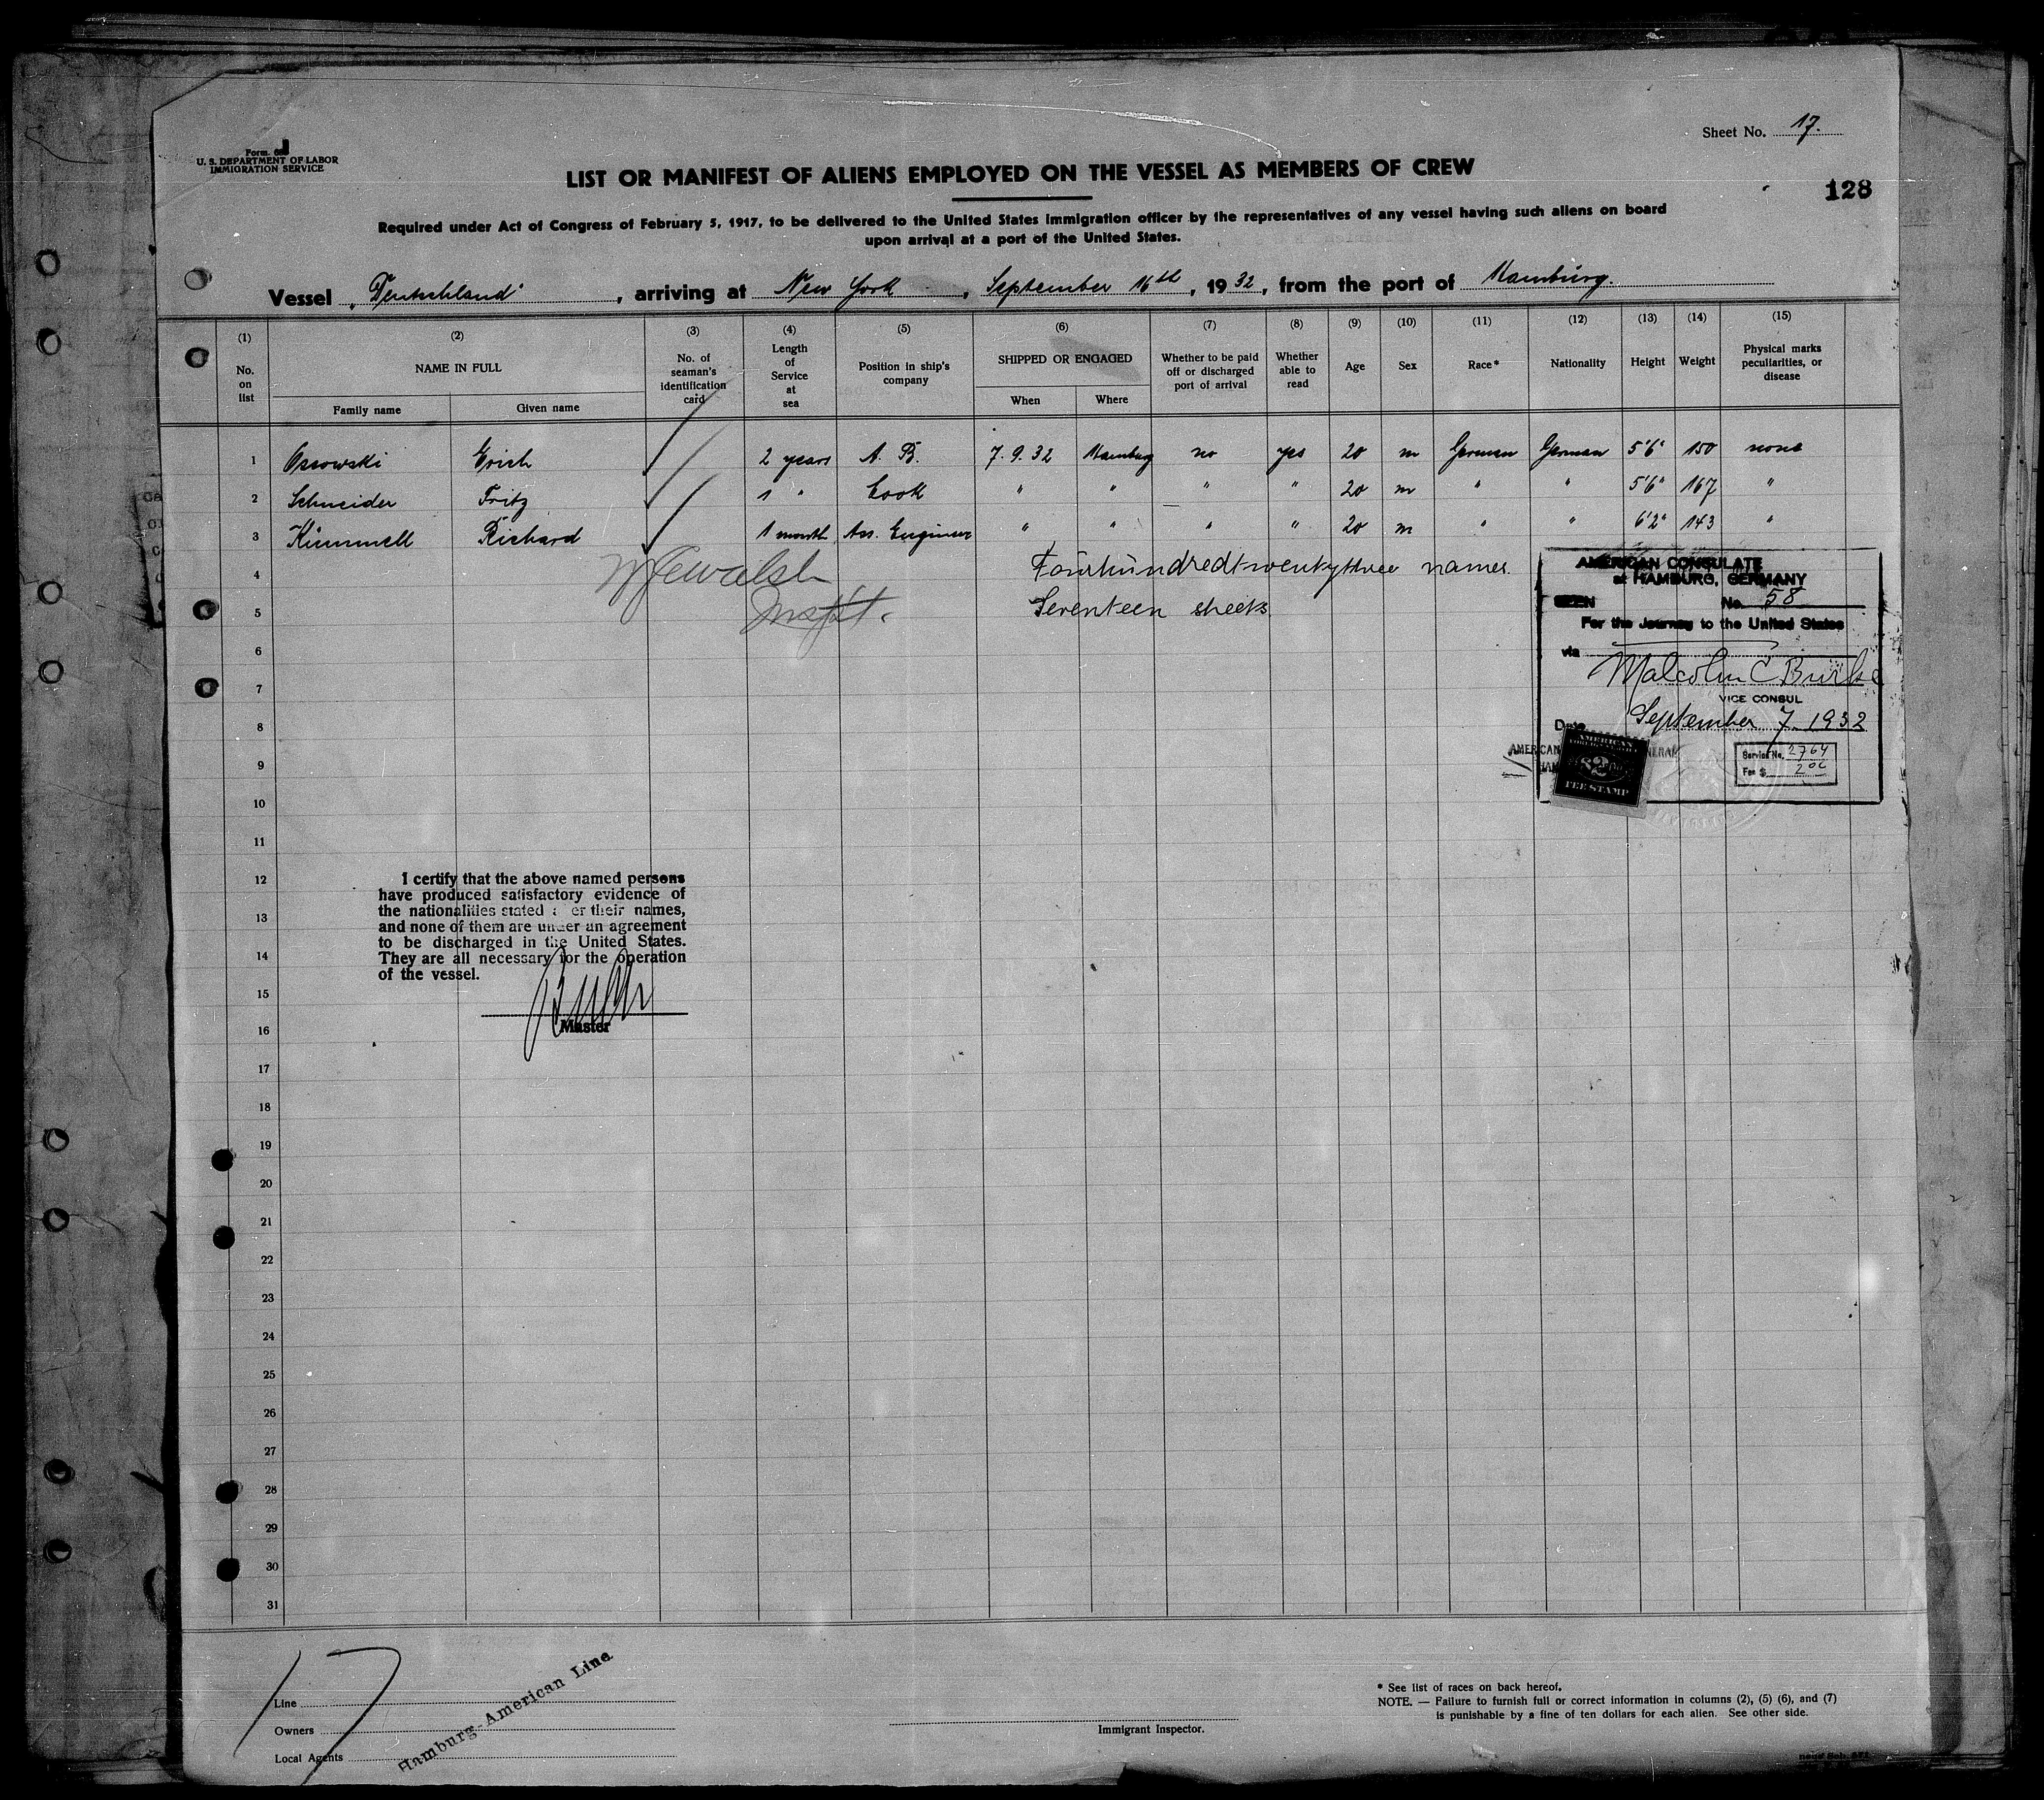 Sheet No. 17.
Form 6
U. S. DEPARTMENT OF LABOR
IMMIGRATION SERVICE
LIST OR MANIFEST OF ALIENS EMPLOYED ON THE VESSEL AS MEMBERS OF CREW
128
Required under Act of Congress of February 5, 1917, to be delivered to the United States immigration officer by the representatives of any vessel having such aliens on board
upon arrival at a port of the United States.
Vessel „Deutschland", arriving at New York, September 16th, 1932, from the port of Hamburg.
(1) (2) (3) (4) (5) (6) (7) (8) (9) (10) (11) (12) (13) (14) (15)
No. on list NAME IN FULL No. of seaman's identification card Length of Service at sea Position in ship's company SHIPPED OR ENGAGED Whether to be paid off or discharged port of arrival Whether able to read Age Sex Race* Nationality Height Weight Physical marks peculiarities, or disease
Family name Given name When Where
1 Ossowski Erich 2 years A. B. 7.9.32 Hamburg no yes 20 m German German 5'6" 150 none
2 Schneider Fritz 1 " Cook " " " " 20 m " " 5'6" 167 "
3 Kümmell Richard 1 month Ass. Engineer " " " " 20 m " " 6'2" 143 "
4 Fourhundredtwentythree names.
5 Seventeen sheets.
6
7
8
9
10
11
12
13
14
15
16
17
18
19
20
21
22
23
24
25
26
27
28
29
30
31
Walsh
Inspt.
AMERICAN CONSULATE
at HAMBURG, GERMANY
SEEN No. 58
For the Journey to the United States
via
Malcolm C Burke
VICE CONSUL
Date September 7 1932
AMERICAN
FEE STAMP
Service No. 2764
Fee $ 2 00
I certify that the above named persons
have produced satisfactory evidence of
the nationalities stated er their names,
and none of them are under an agreement
to be discharged in the United States.
They are all necessary for the operation
of the vessel.
Master
17
Line
Owners
Local Agents
Hamburg-American Line
Immigrant Inspector.
* See list of races on back hereof.
NOTE. — Failure to furnish full or correct information in columns (2), (5) (6), and (7)
is punishable by a fine of ten dollars for each alien. See other side.